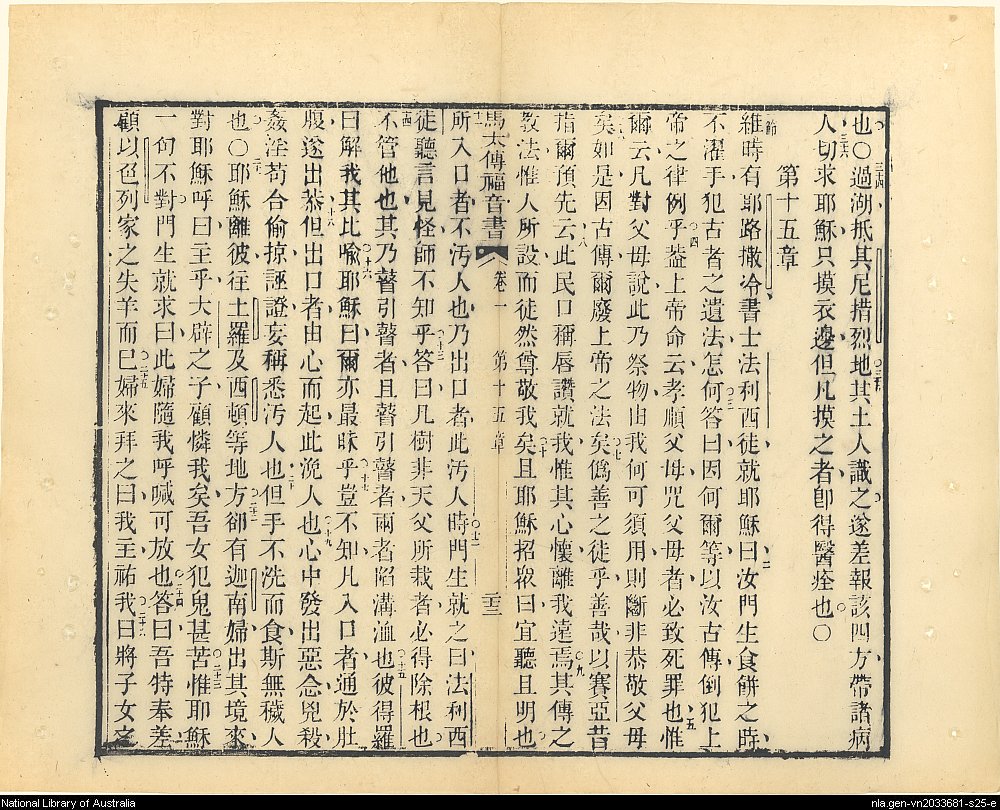 也○過湖抵其尼措烈地其土人識之遂差報該四方帶諸病
人切求耶穌只摸衣邊但凡摸之者卽得醫痊也○
第十五章
維時有耶路撒冷書士法利西徒就耶穌曰汝門生食餅之時
不濯手犯古者之遺法怎何答曰因何爾等以汝古傳倒犯上
帝之律例乎蓋上帝命云孝順父母咒父母者必致死罪也惟
爾云凡對父母說此乃祭物由我何可須用則斷非恭敬父母
矣如是因古傳爾廢上帝之法矣偽善之徒乎善哉以賽亞昔
指爾預先云此民口稱唇讚就我惟其心懷離我遠焉其傳之
教法惟人所設而徒然尊敬我矣且耶穌招眾曰宜聽且明也
馬太傳福音書 卷一 第十五章 二十三
所入口者不汚人也乃出口者此汚人時門生就之曰法利西
徒聽言見怪師不知乎答曰凡樹非天父所栽者必得除根也
不管他也其乃瞽引瞽者且瞽引瞽者兩者陷溝洫也彼得羅
曰解我其比喻耶穌曰爾亦最昧乎豈不知凡入口者通於肚
腹遂出恭但出口者由心而起此浼人也心中發出惡念兇殺
姦淫苟合偷掠誣證妄稱悉汚人也但手不洗而食斯無穢人
也○耶穌離彼往土羅及西頓等地方卻有迦南婦出其境來
對耶穌呼曰主乎大辟之子顧憐我矣吾女犯鬼甚苦惟耶穌
一句不對門生就求曰此婦隨我呼喊可放也答曰吾特奉差
顧以色列家之失羊而已婦來拜之曰我主祐我曰將子女之
National Library of Australia
nla.gen-vn2033681-s25-e